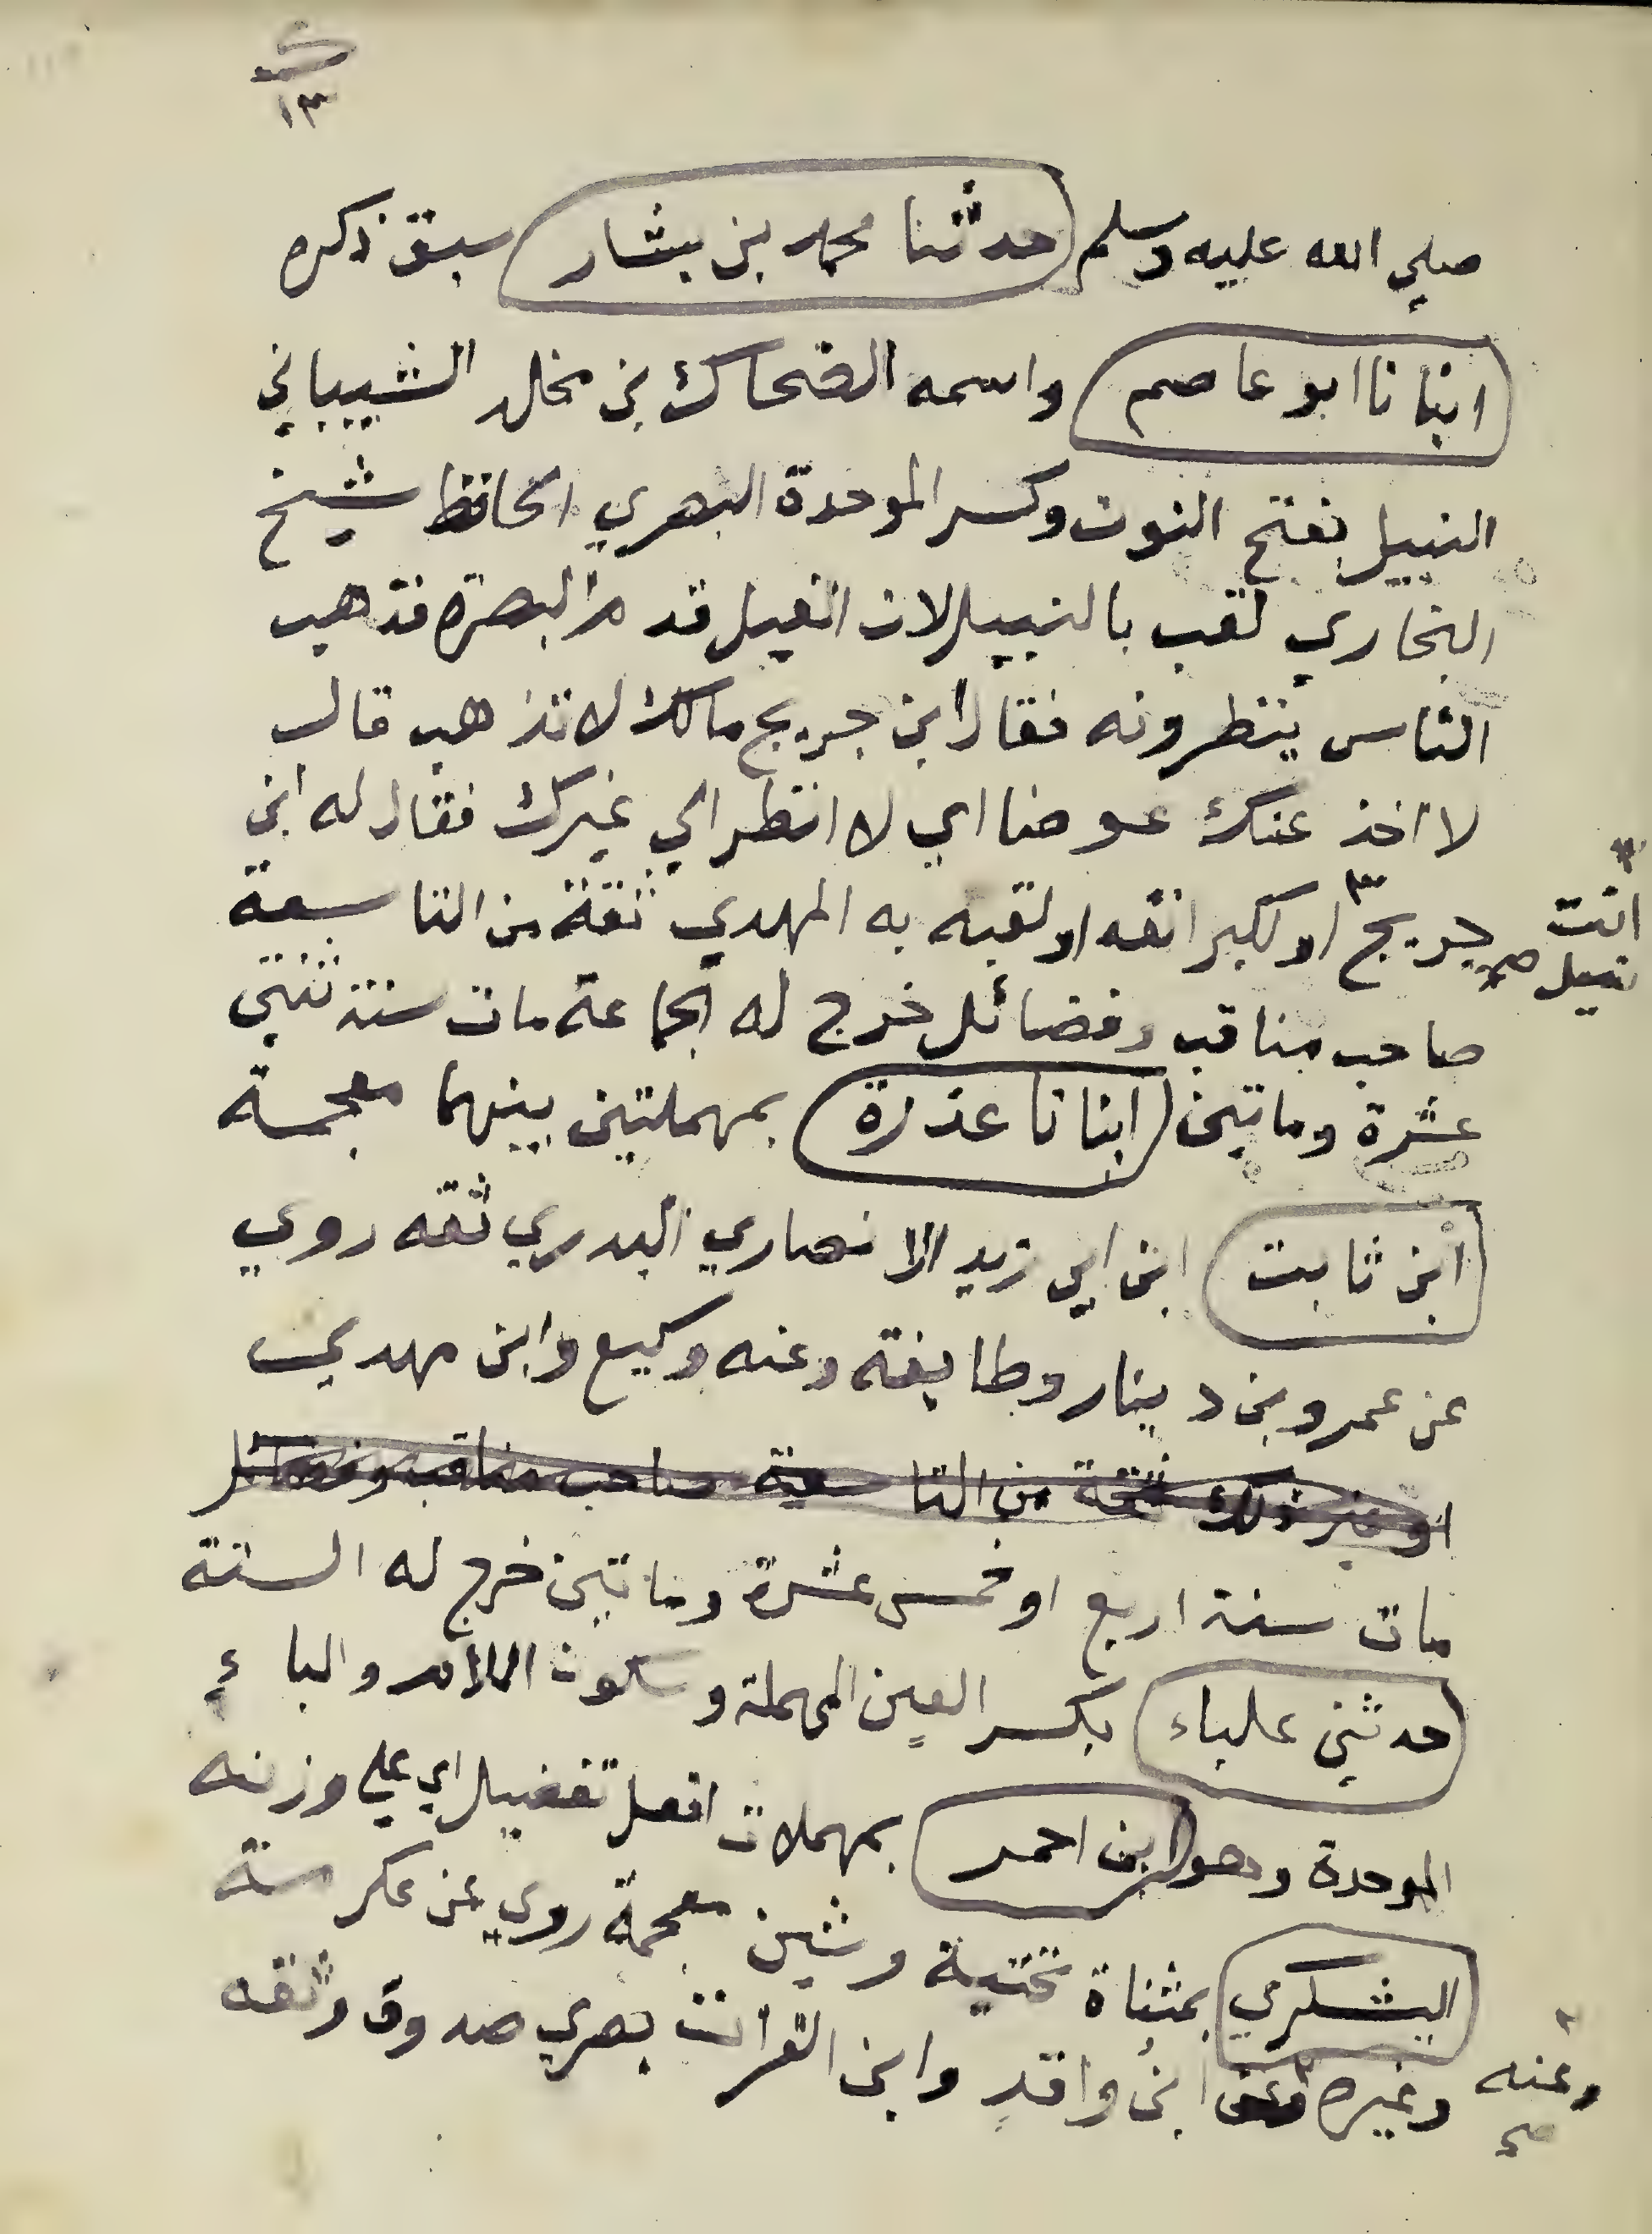 ١٣
صلي الله عليه وسلم حدثنا محمد بن بشار سبق ذكره
انبانا ابو عاصم واسمه الضحاك بن مخلد الشيباني
النبيل بفتح النون وكسر الموحدة البصري الحافظ شيخ
البخاري لقب بالنبيل لان الفيل قدم البصرة فذهب
الناس ينظرونه فقال ابن جريج مالك لا تذهب قال
لا اخذ عنك عوضا اي لا انظر الي غيرك فقال له ابن
جريج ٣ او لكبر انفه او لقبه به المهدي ثقة من التاسعة
٣ انت
نبيل صح
صاحب مناقب وفضائل خرج له الجماعة مات سنة ثنتي
عشرة وماتين انبانا عزرة بمهملتين بينهما معجمة
ابن ثابت ابن ابي زيد الانصاري البدري ثقه روي
عن عمرو بن دينار وطايفة وعنه وكيع وابن مهدي
او غير ذلك ثقة من التاسعة صاحب مناقب وفضائل
مات سنة اربع او خمس عشرة وماتين خرج له الستة
حدثني علباء بكسر العين المهملة وسكون اللام والباء
الموحدة وهو ابن احمر بمهملات افعل تفضيل اي علي وزنه
اليشكري بمثناة تحتية وشين معجمة روي عن عكرمة
وغيره ٢ ابن واقد وابن الفرات بصري صدوق وثقه
٢ وعنه
صح